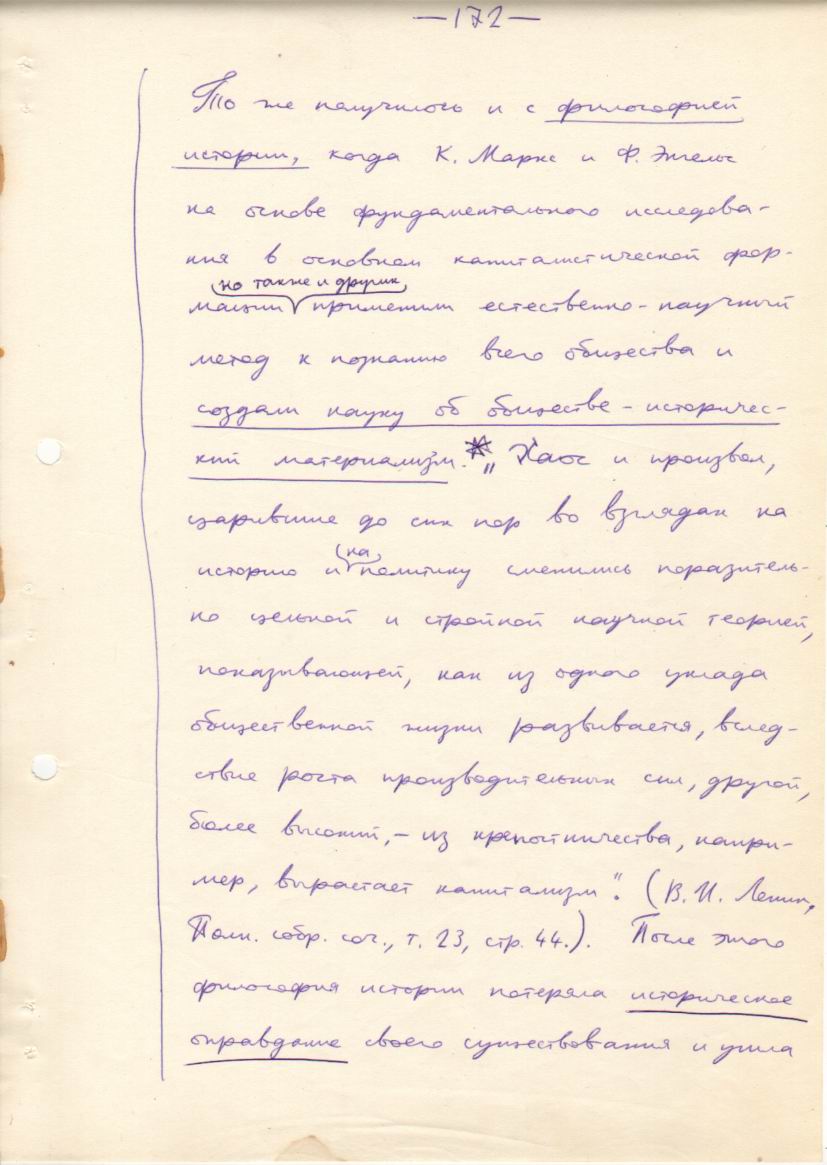 —172—
То же получилось и с философией
истории, когда К. Маркс и Ф. Энгельс
на основе фундаментального исследова-
ния в основном капиталистической фор-
но также и других
мации применили естественно-научный
метод к познанию всего общества и
создали науку об обществе - историчес-
кий материализм.* „Хаос и произвол,
царившие до сих пор во взглядах на
на
историю и политику сменились поразитель-
но цельной и стройной научной теорией,
показывающей, как из одного уклада
общественной жизни развивается, вслед-
ствие роста производительных сил, другой,
более высокий, - из крепостничества, напри-
мер, вырастает капитализм". (В. И. Ленин,
Полн. собр. соч., т. 23, стр. 44.). После этого
философия истории потеряла историческое
оправдание своего существования и ушла